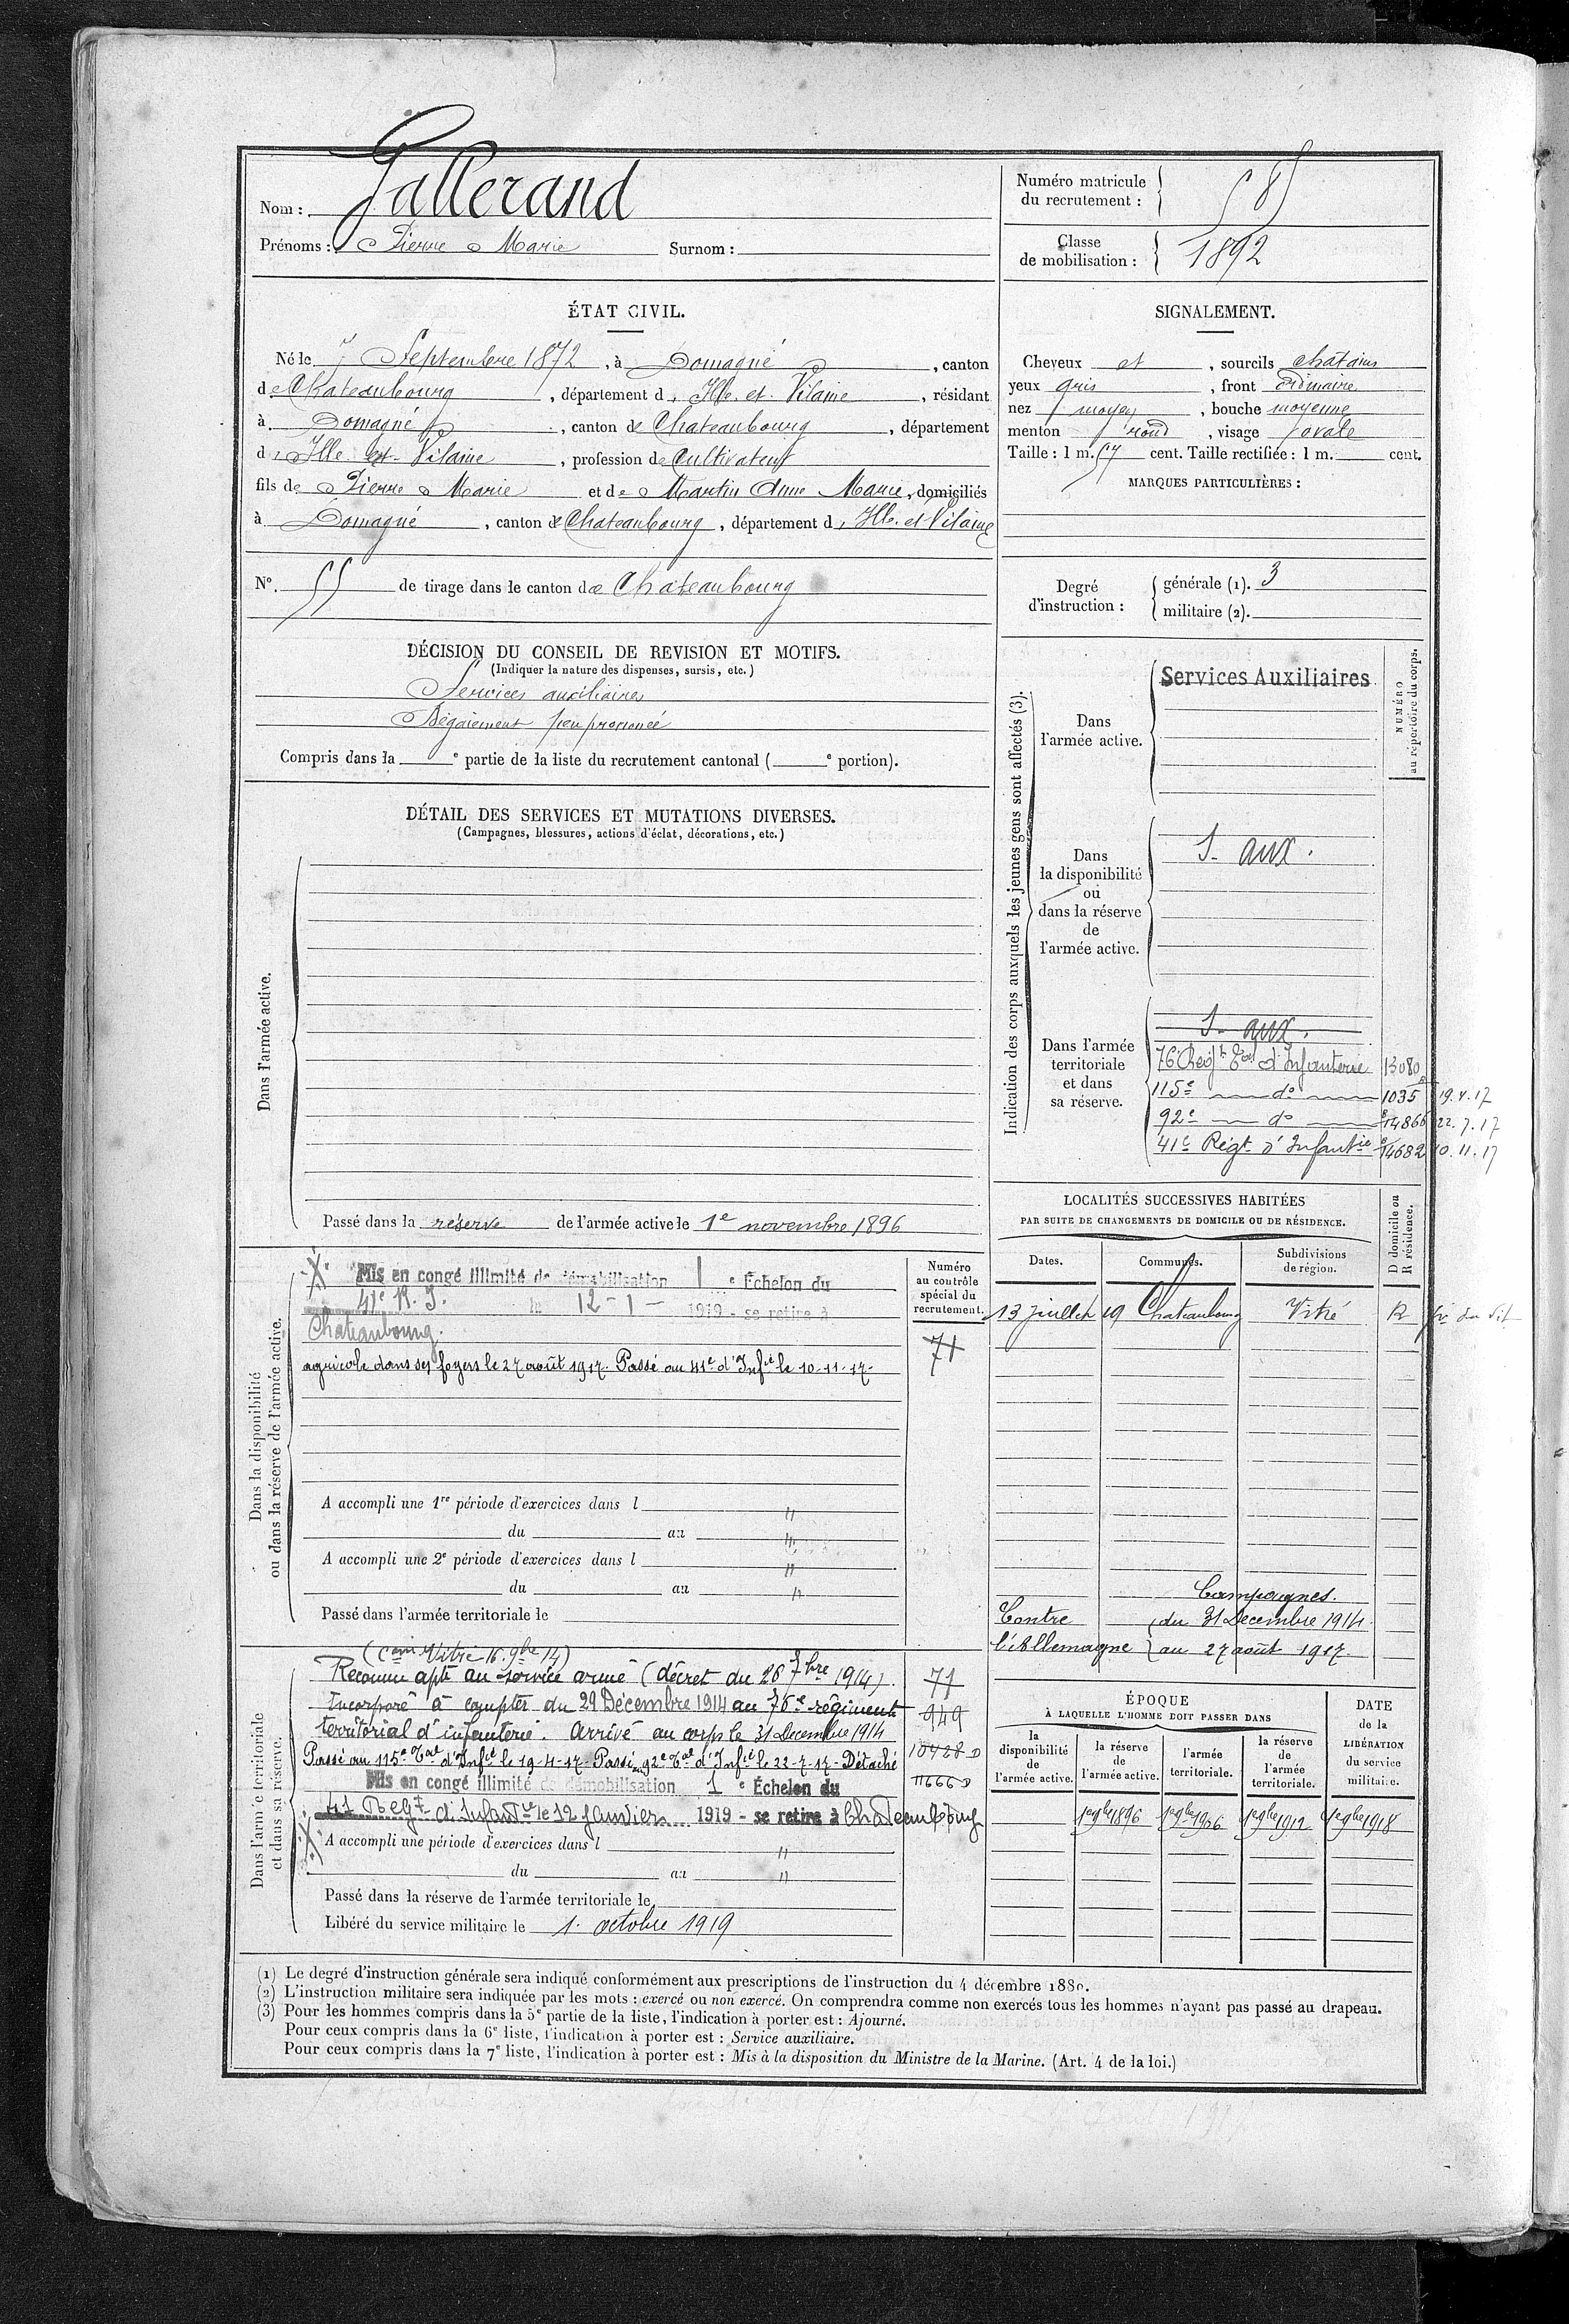 Nom : Gallerand
Prénoms : Pierre Marie Surnom :
Numéro matricule du recrutement : 585
Classe de mobilisation : 1892
ÉTAT CIVIL.
Né le 7 Septembre 1872, à Domagné, canton
de Chateaubourg, département d'Ille-et-Vilaine, résidant
à Domagné, canton de Chateaubourg, département
d'Ille-et-Vilaine, profession de Cultivateur
fils de Pierre Marie et de Martin Anne Marie, domiciliés
à Domagné, canton de Chateaubourg, département d'Ille-et-Vilaine
N° 55 de tirage dans le canton de Chateaubourg
SIGNALEMENT.
Cheveux et, sourcils chatains
yeux gris, front ordinaire
nez moyen, bouche moyenne
menton rond, visage ovale
Taille : 1 m. 57 cent. Taille rectifiée : 1 m. cent.
MARQUES PARTICULIÈRES :
Degré d'instruction : générale (1). 3
militaire (2).
DÉCISION DU CONSEIL DE REVISION ET MOTIFS.
(Indiquer la nature des dispenses, sursis, etc.)
Services auxiliaires
Bégaiement peu prononcé
Compris dans la e partie de la liste du recrutement cantonal ( e portion).
DÉTAIL DES SERVICES ET MUTATIONS DIVERSES.
(Campagnes, blessures, actions d'éclat, décorations, etc.)
Dans l'armée active.
Passé dans la réserve de l'armée active le 1e novembre 1896
Indication des corps auxquels les jeunes gens sont affectés (3).
NUMÉRO au répertoire du corps.
Dans l'armée active.
Services Auxiliaires
Dans la disponibilité ou dans la réserve de l'armée active.
S. aux.
Dans l'armée territoriale et dans sa réserve.
S. aux.
76 Regt Tal d'Infanterie 13080
115e do 1035 19.4.17
92e do 14866 22.7.17
41e Regt d'Infantie 14682 10.11.17
LOCALITÉS SUCCESSIVES HABITÉES
PAR SUITE DE CHANGEMENTS DE DOMICILE OU DE RÉSIDENCE.
Dates. Communes. Subdivisions de région. D domicile ou R résidence.
13 juillet 19 Chateaubourg Vitré R
Dans la disponibilité ou dans la réserve de l'armée active.
Numéro au contrôle spécial du recrutement.
Mis en congé illimité de démobilisation 1 e Échelon du
41e R.I. le 12-1- 1919 - se retire à
Chateaubourg.
71
agricole dans ses foyers le 27 août 1917. Passé au 41e d'Infie le 10-11-17-
A accompli une 1re période d'exercices dans l "
du au "
A accompli une 2e période d'exercices dans l "
du au "
Passé dans l'armée territoriale le
Campagnes.
Contre l'Allemagne du 31 Décembre 1914
au 27 août 1917.
Dans l'armée territoriale et dans sa réserve.
(Com Vitré 16. 9bre 14)
Reconnu apte au service armé (décret du 26 7bre 1914). 71
Incorporé à compter du 29 Décembre 1914 au 76e régiment 949
territorial d'infanterie. Arrivé au corps le 31 Décembre 1914
Passé au 115e Tal d'Infie le 19-4-17- Passé au 92e Tal d'Infie le 22-7-17- Détaché 10428 D
Mis en congé illimité de démobilisation 1 e Échelon du 11666 D
41 Regt d'Infantie le 12 Janvier 1919 - se retire à Chateaubourg
A accompli une période d'exercices dans l "
du au "
Passé dans la réserve de l'armée territoriale le
Libéré du service militaire le 1. octobre 1919
ÉPOQUE
À LAQUELLE L'HOMME DOIT PASSER DANS
la disponibilité de l'armée active. la réserve de l'armée active. l'armée territoriale. la réserve de l'armée territoriale.
DATE de la LIBÉRATION du service militaire.
1er 9bre 1896 1er 9bre 1906 1er 9bre 1912 1er 9bre 1918
(1) Le degré d'instruction générale sera indiqué conformément aux prescriptions de l'instruction du 4 décembre 1880.
(2) L'instruction militaire sera indiquée par les mots : exercé ou non exercé. On comprendra comme non exercés tous les hommes n'ayant pas passé au drapeau.
(3) Pour les hommes compris dans la 5e partie de la liste, l'indication à porter est : Ajourné.
Pour ceux compris dans la 6e liste, l'indication à porter est : Service auxiliaire.
Pour ceux compris dans la 7e liste, l'indication à porter est : Mis à la disposition du Ministre de la Marine. (Art. 4 de la loi.)